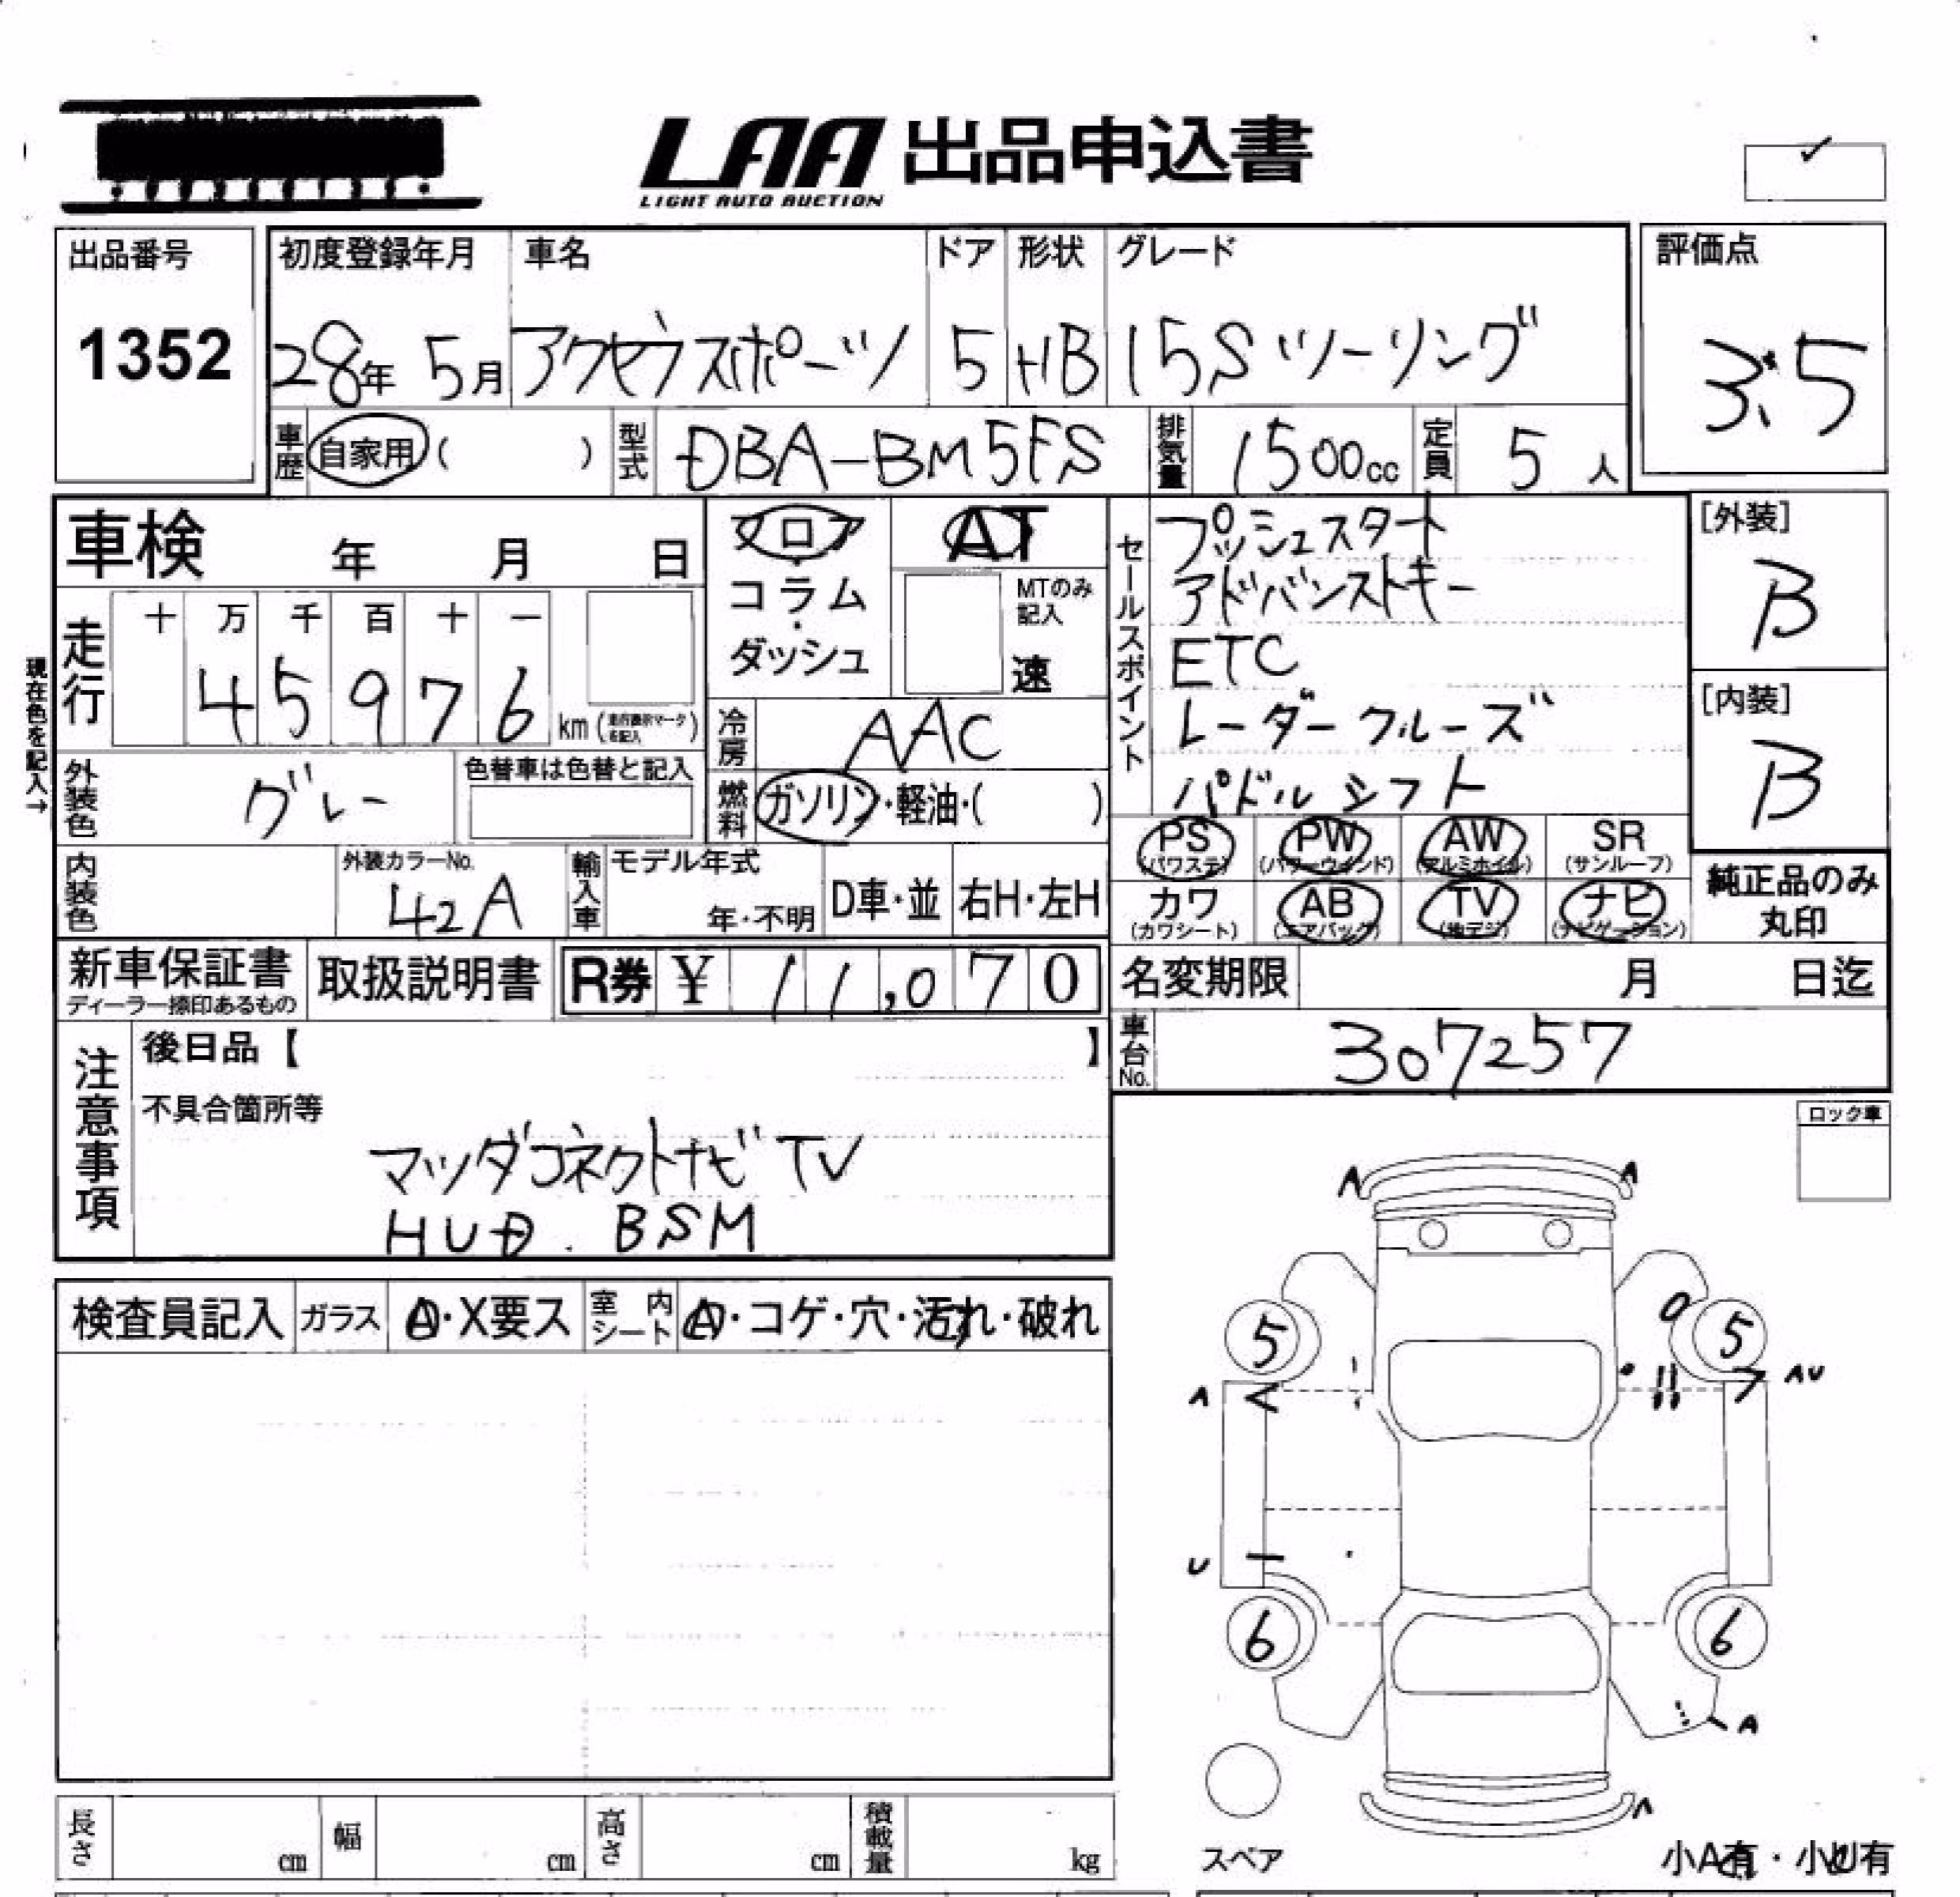 LAA 出品申込書
LIGHT AUTO AUCTION
出品番号
1352
初度登録年月 車名 ドア 形状 グレード
28年 5月 アクセラスポーツ 5 HB 15Sツーリング
評価点
3.5
車歴 自家用 ( ) 型式 DBA-BM5FS 排気量 1500cc 定員 5人
車検 年 月 日
フロア
コラム
ダッシュ
AT
MTのみ記入
速
セールスポイント
プッシュスタート
アドバンストキー
ETC
レーダークルーズ
パドルシフト
[外装]
B
[内装]
B
現在色を記入→
走行
十 万 千 百 十 一
4 5 9 7 6 km (走行表示マークを記入)
冷房 AAC
外装色 グレー
色替車は色替と記入
燃料 ガソリン・軽油・( )
PS PW AW SR
(パワステ) (パワーウインド) (アルミホイル) (サンルーフ)
カワ AB TV ナビ
(カワシート) (エアバッグ) (地デジ) (ナビゲーション)
純正品のみ
丸印
内装色
外装カラーNo.
42A
輸入車 モデル年式
年・不明
D車・並 右H・左H
新車保証書
ディーラー捺印あるもの
取扱説明書
R券 ¥ 11,070
名変期限 月 日迄
車台No. 307257
注意事項
後日品【 】
不具合箇所等
マツダコネクトナビ TV
HUD. BSM
ロック車
検査員記入 ガラス A・X要ス 室内シート A・コゲ・穴・汚れ・破れ
A A
5 5
A AU
U
6 6
A
A
スペア
小A有・小U有
長さ cm 幅 cm 高さ cm 積載量 kg